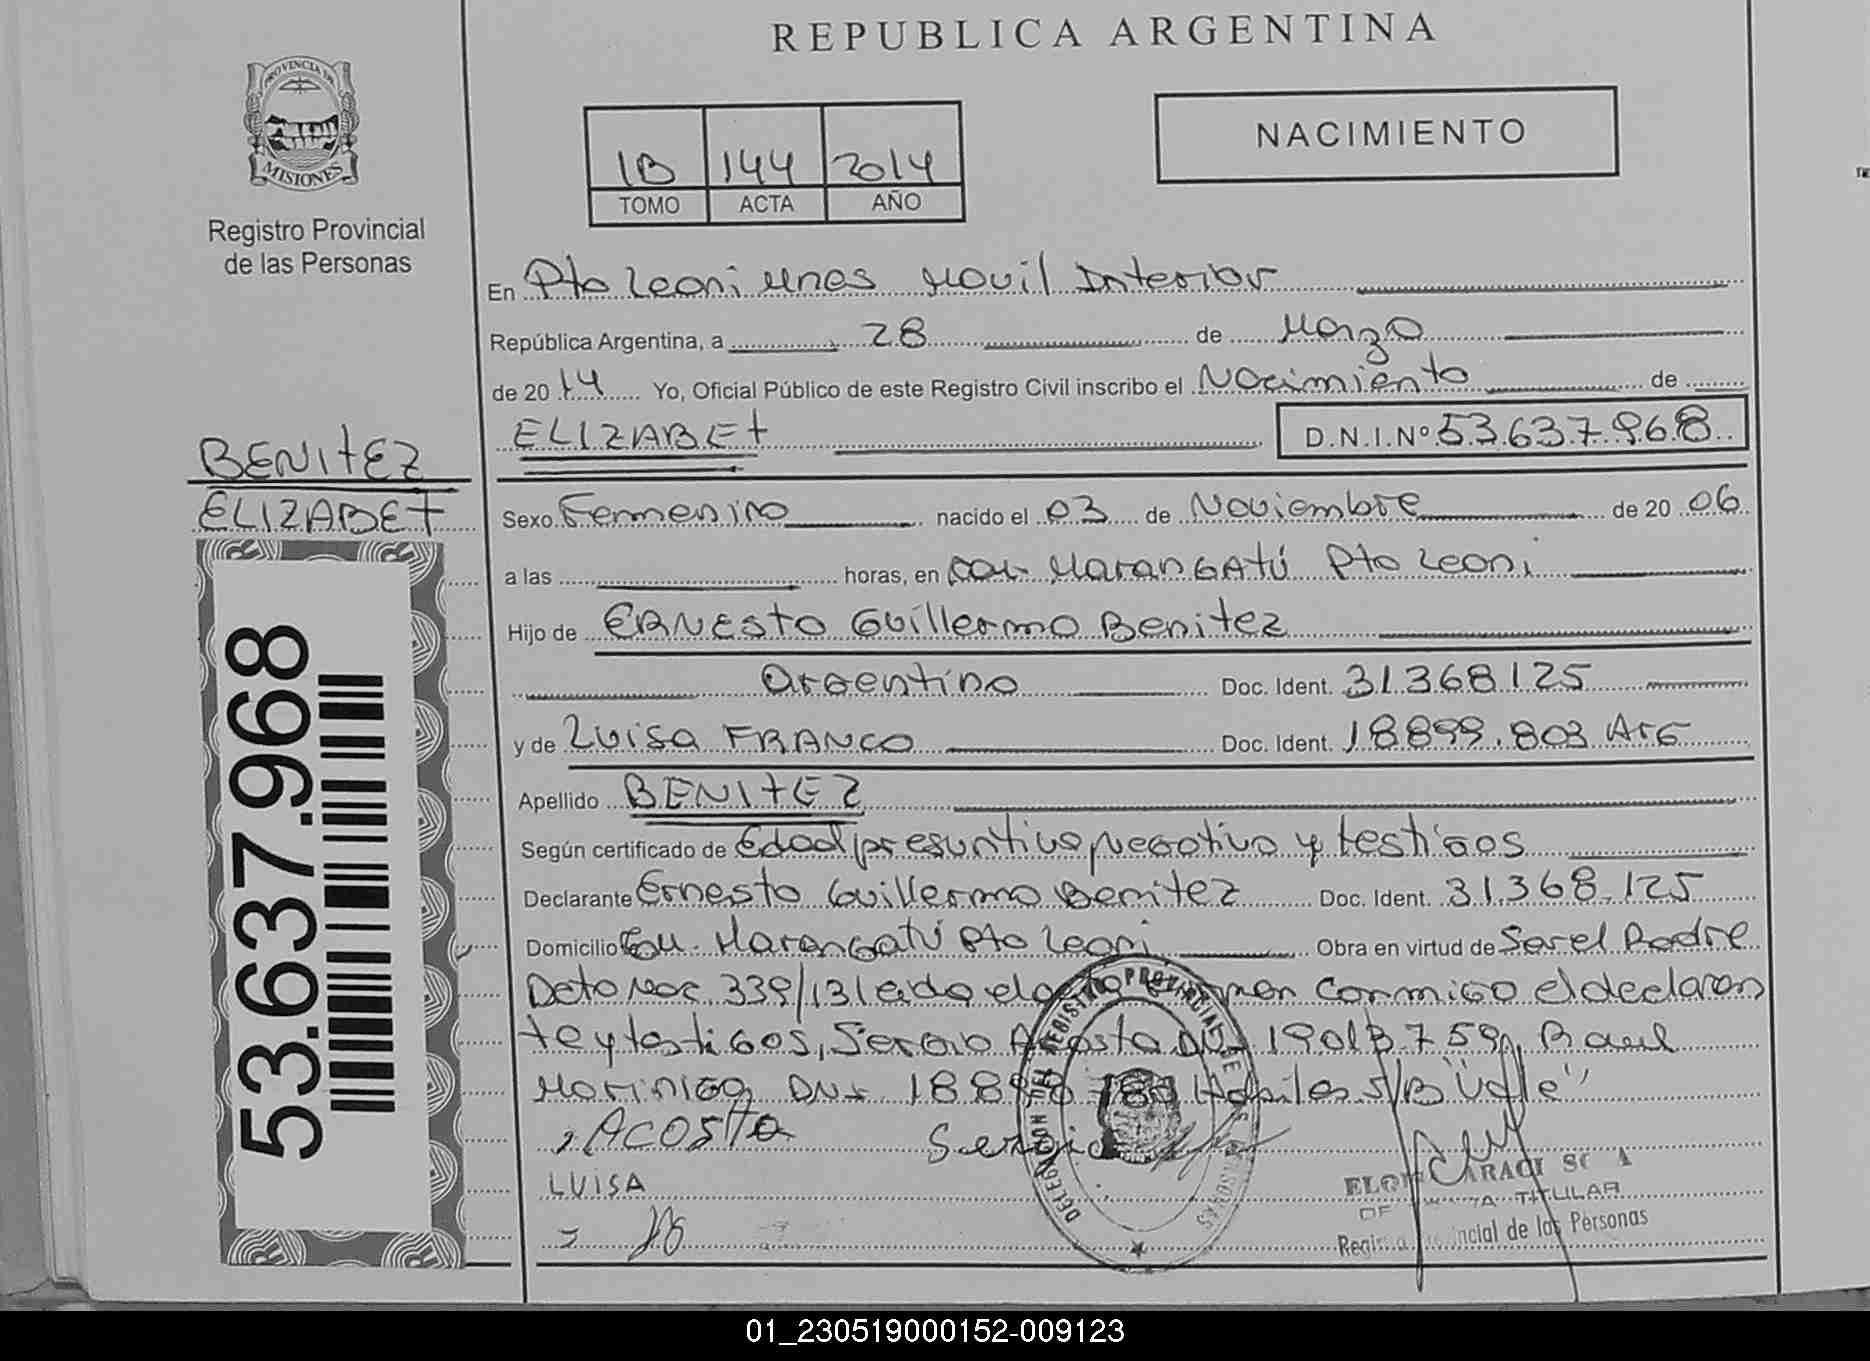 REPUBLICA ARGENTINA
PROVINCIA DE
MISIONES
Registro Provincial
de las Personas
NACIMIENTO
1B 144 2014
TOMO ACTA AÑO
En Pto Leoni Mnes Movil Interior
República Argentina, a 28 de Marzo
de 2014 Yo, Oficial Público de este Registro Civil inscribo el Nacimiento de
ELIZABET D.N.I.Nº 53.637.968
BENITEZ
ELIZABET
53.637.968
Sexo Femenino nacido el 03 de Noviembre de 20 06
a las horas, en Com. Marangatú Pto Leoni
Hijo de Ernesto Guillermo Benitez
Argentino Doc. Ident. 31.368.125
y de Luisa FRANCO Doc. Ident. 18.899.803 Arg
Apellido BENITEZ
Según certificado de Edad presuntiva, negativo y testigos
Declarante Ernesto Guillermo Benitez Doc. Ident. 31.368.125
Domicilio Com. Marangatú Pto Leoni Obra en virtud de Ser el Padre
Dcto Nac. 339/13 leido el acta firman conmigo el declaran
te y testigos, Sergio Acosta DNI 19013759, Raul
DNI 18.898 Habiles S/B "Vale"
ACOSTA Sergio
LUISA
TITULAR
Provincial de las Personas
01_230519000152-009123